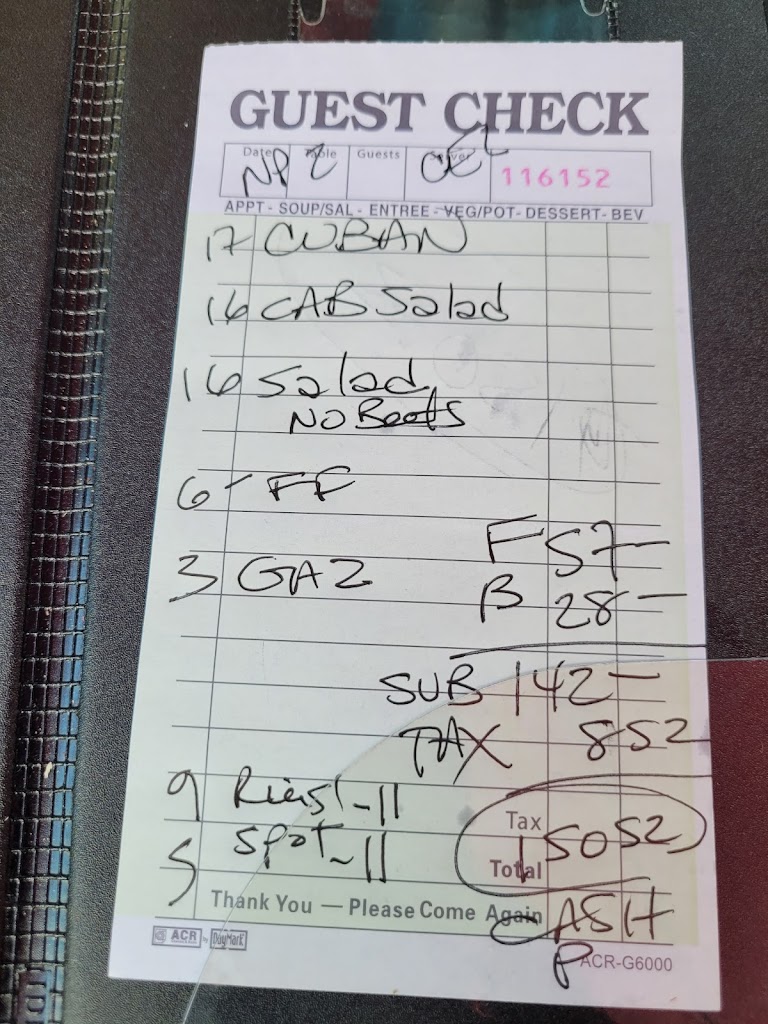 GUEST CHECK
Date Table Guests Server
NP 2 116152
APPT - SOUP/SAL - ENTREE - VEG/POT - DESSERT - BEV
17 CUBAN
16 CAB Salad
16 Salad
NO Beets
6 - FF
F 57 -
3 GAZ
B 28 -
SUB 142 -
TAX 8 52
9 Riesl - 11
Tax
5 Spot - 11
150 52
Total
Thank You — Please Come Again
CASH
P
ACR by DayMark
ACR-G6000